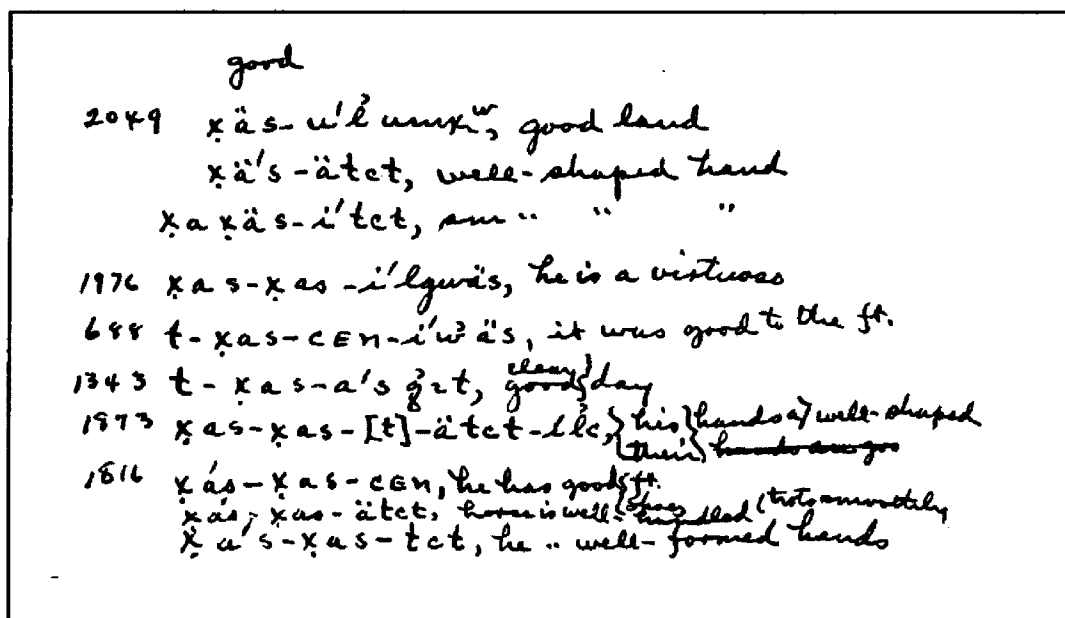 good
2049 x̣äs-u'l̓umxʷ, good land
x̣ä's-ätct, well-shaped hand
x̣ax̣äs-i'tct, sm " " "
1976 x̣as-x̣as-i'lgwäs, he is a virtuoso
688 t-x̣as-cEn-i'w̓äs, it was good to the ft.
1343 t-x̣as-a'sg̓ɪt, good clear day
1873 x̣as-x̣as-[t]-ätct-ll̓c, his hands are well-shaped
their hands are goo
1816 x̣ás-x̣as-cEn, he has good ft. shoes
x̣ás-x̣as-ätct, horse is well- (trots smoothly
x̣a's-x̣as-tct, he " well-formed hands